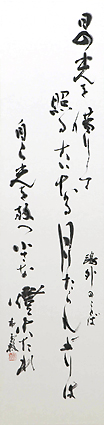 日の光を借りて照る大いなる月たらんよりは
鷗外のことば
自ら光を放つ小さな燈火たれ